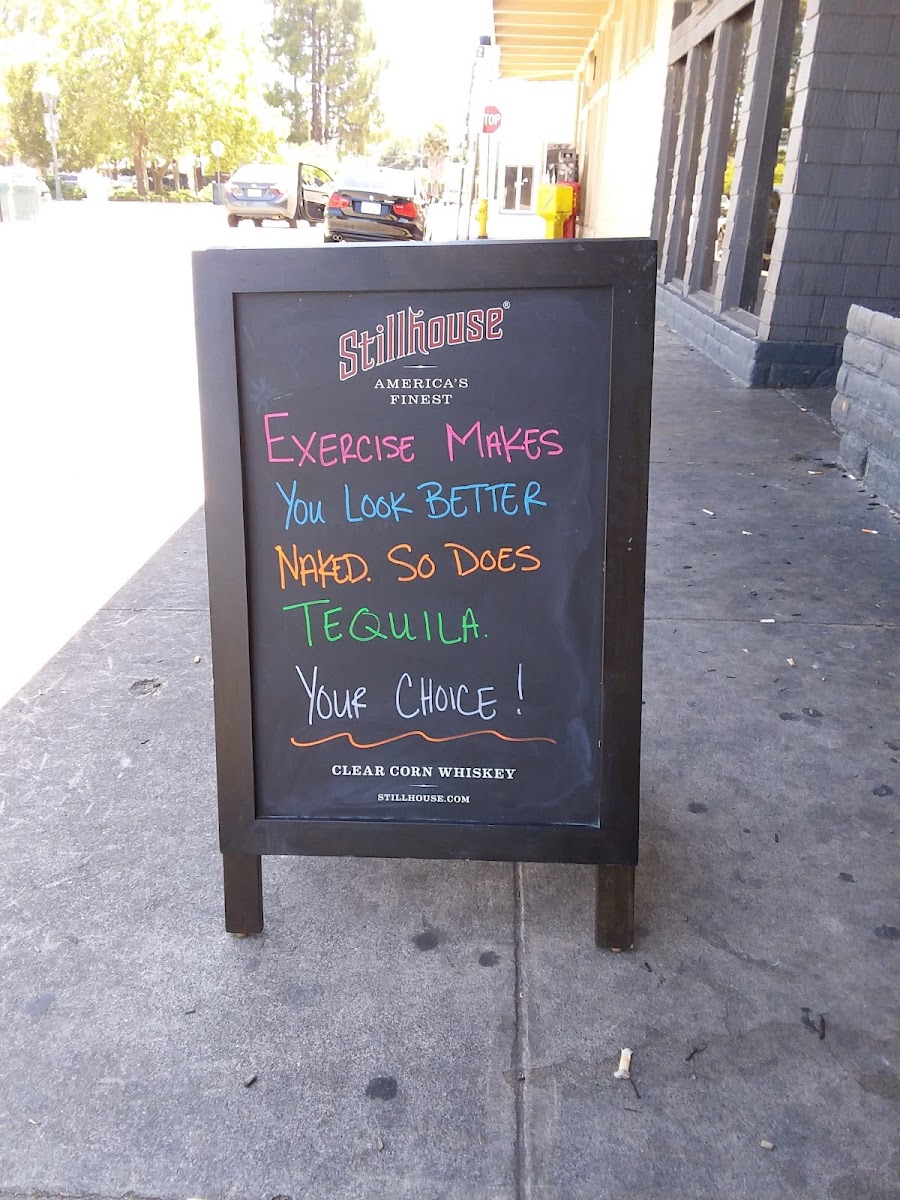 TOP
Stillhouse®
AMERICA'S
FINEST
EXERCISE MAKES
YOU LOOK BETTER
NAKED. SO DOES
TEQUILA.
YOUR CHOICE!
CLEAR CORN WHISKEY
STILLHOUSE.COM